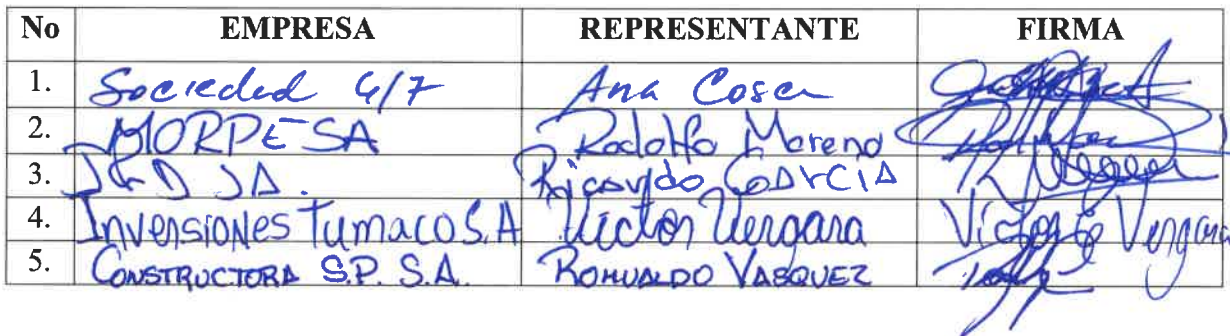 No EMPRESA REPRESENTANTE FIRMA
1. Sociedad 4/7 Ana Cosca
2. MORPE SA Rodolfo Moreno
3. SA. Ricardo GARCIA
4. Inversiones Tumaco S.A Victor Vergara Victor E Vergara
5. CONSTRUCTORA S.P. S.A. ROMUALDO VASQUEZ